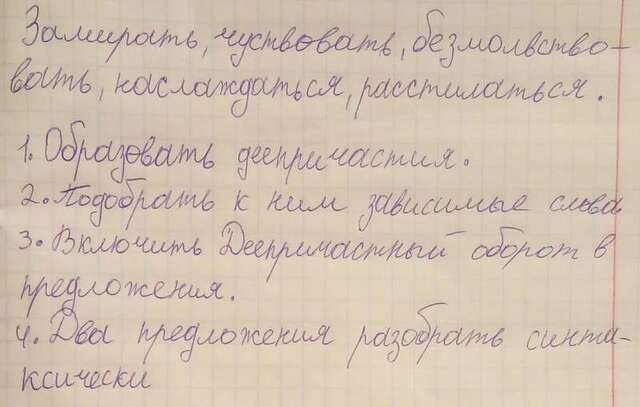 Замирать, чуствовать, безмолвство-
вать, наслаждаться, расстилаться.
1. Образовать деепричастия.
2. Подобрать к ним зависимые слова
3. Включить Деепричастный оборот в
предложения.
4. Два предложения разобрать синта-
ксически